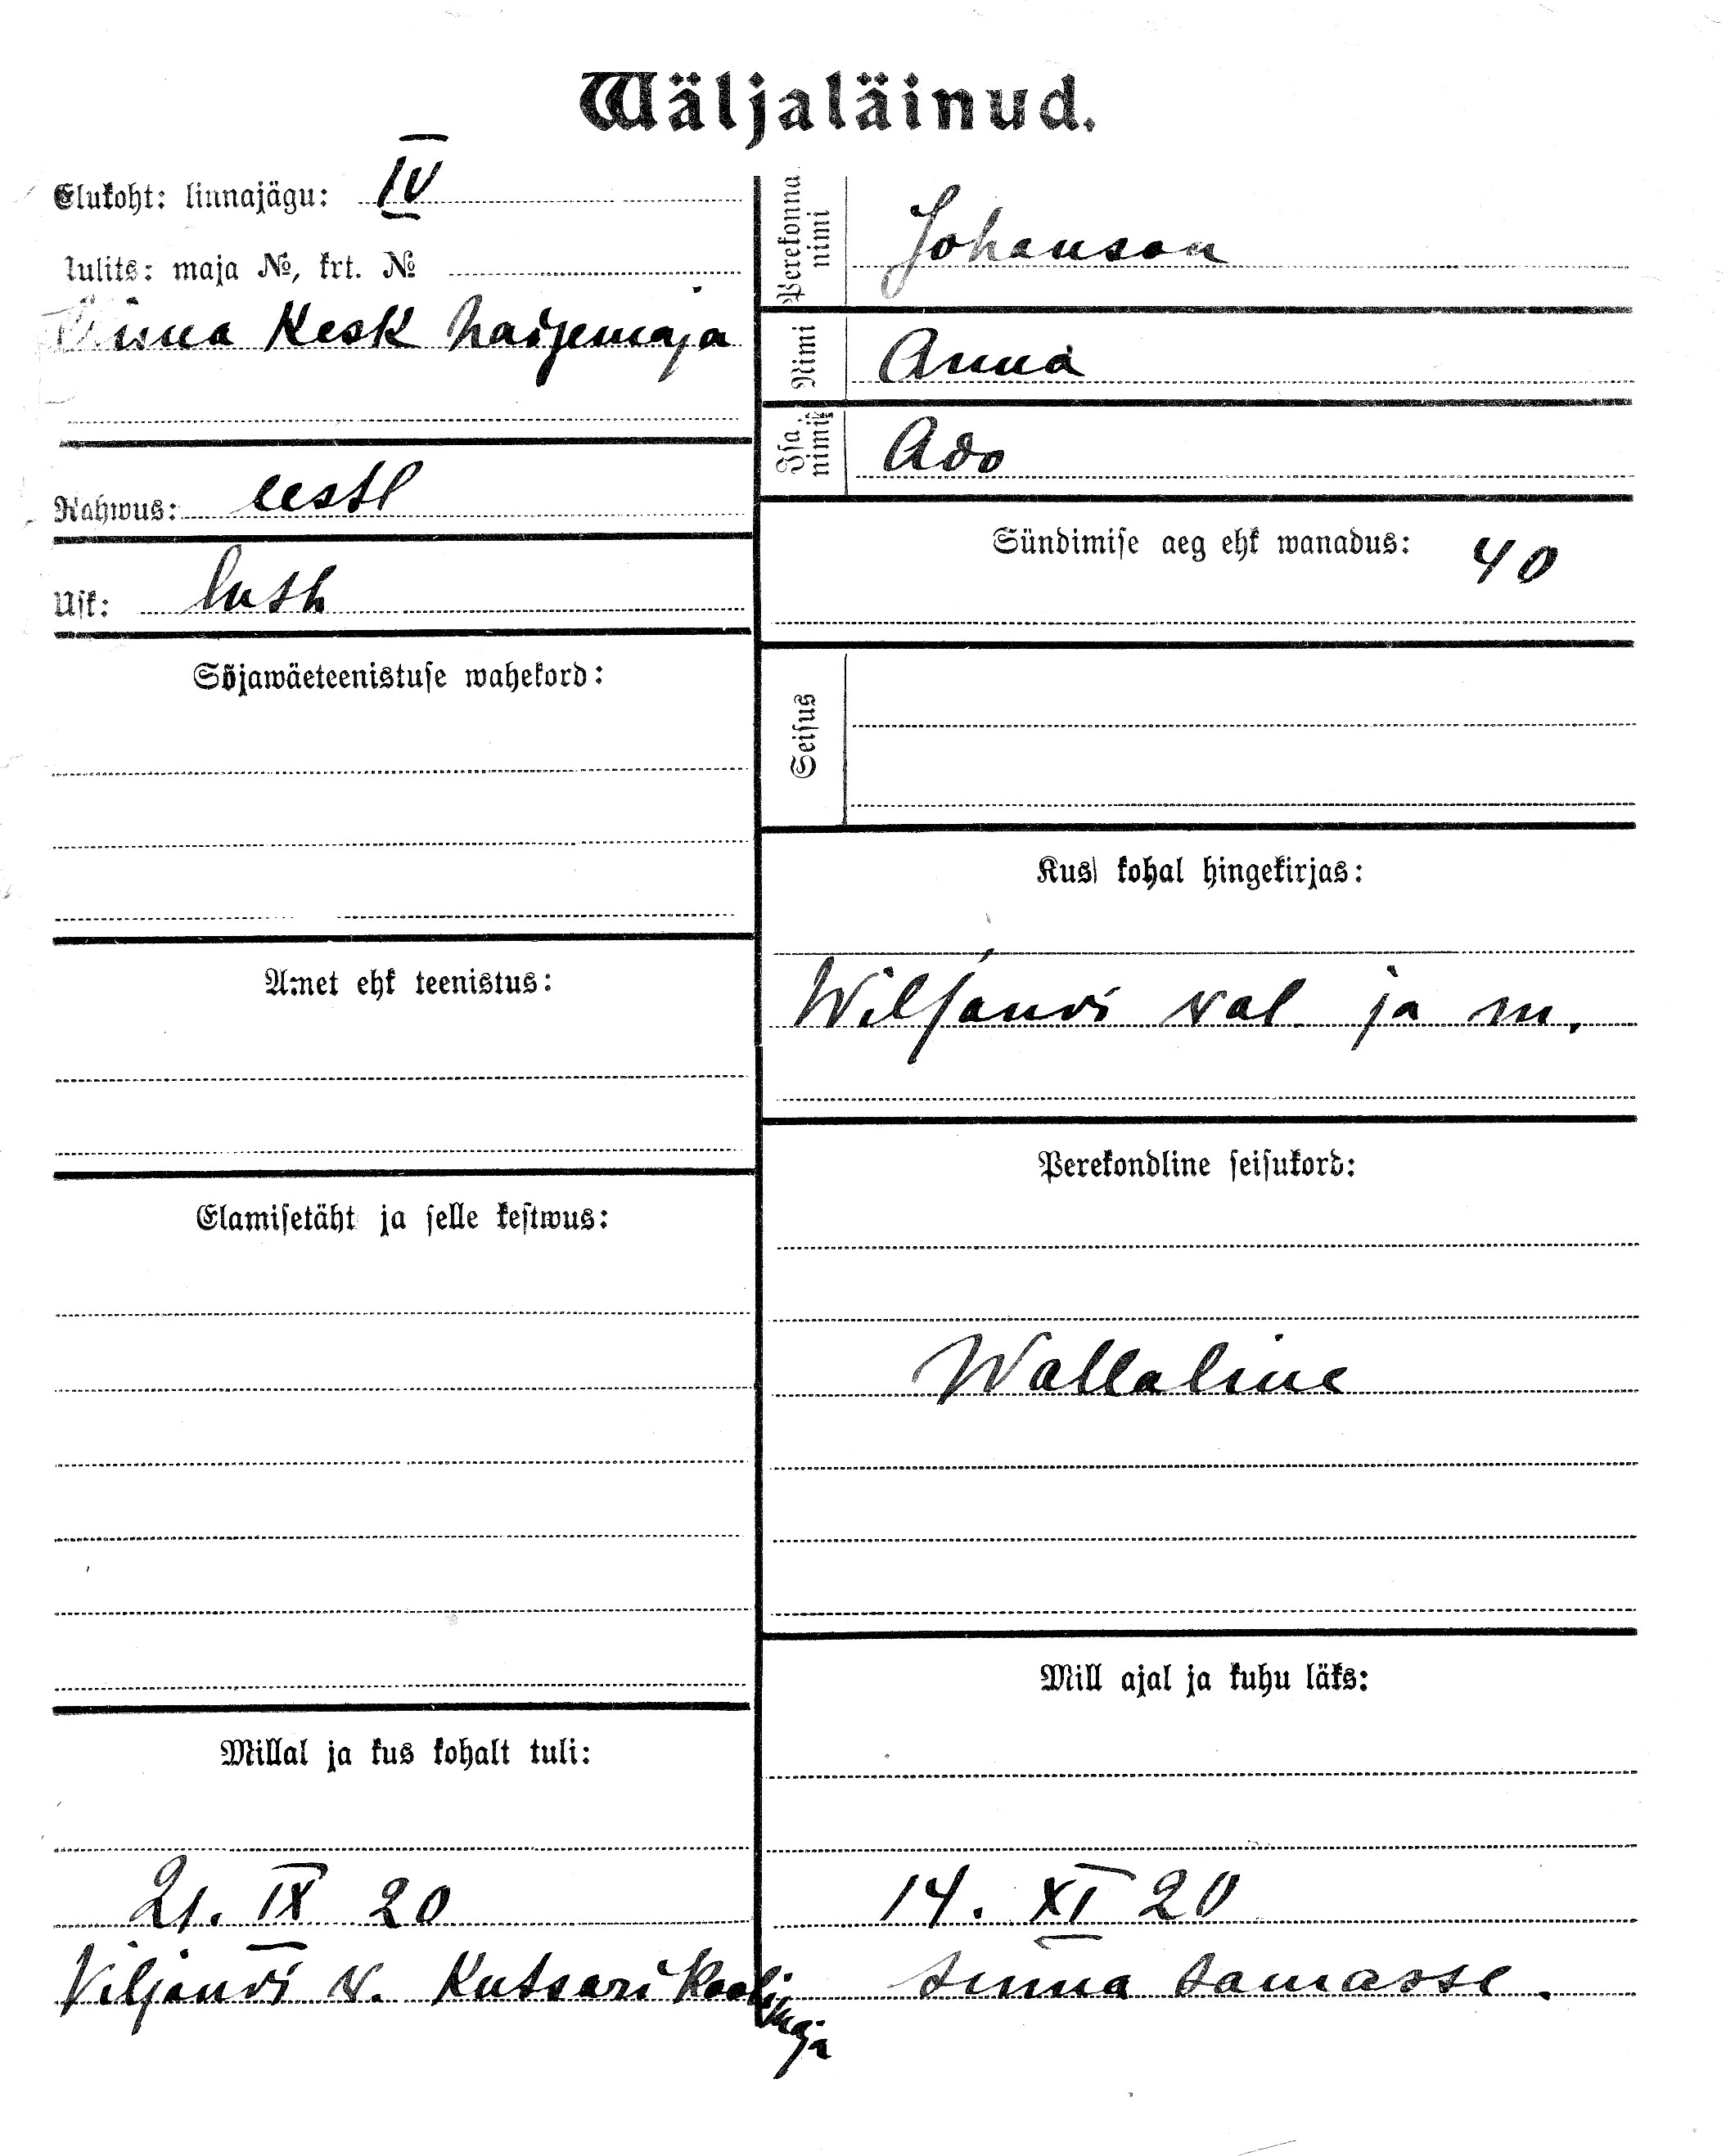 Wäljaläinud.
Elukoht: linnajägu: IV
Uulits: maja №, krt. №
Linna Kesk haigemaja
Rahwus: eestl
Usk: luth
Sõjawäeteenistuse wahekord:
Amet ehk teenistus:
Elamisetäht ja selle kestwus:
Millal ja kus kohalt tuli:
21. IX 20
Viljandi w. Kutsari koolimaja
Perekonna nimi
Johanson
Nimi
Anna
Isa nimi
Ado
Sündimise aeg ehk wanadus: 40
Seisus
Kus kohal hingekirjas:
Wiljandi wal ja m.
Perekondline seisukord:
Wallaline
Mill ajal ja kuhu läks:
14. XI 20
sinna samasse.